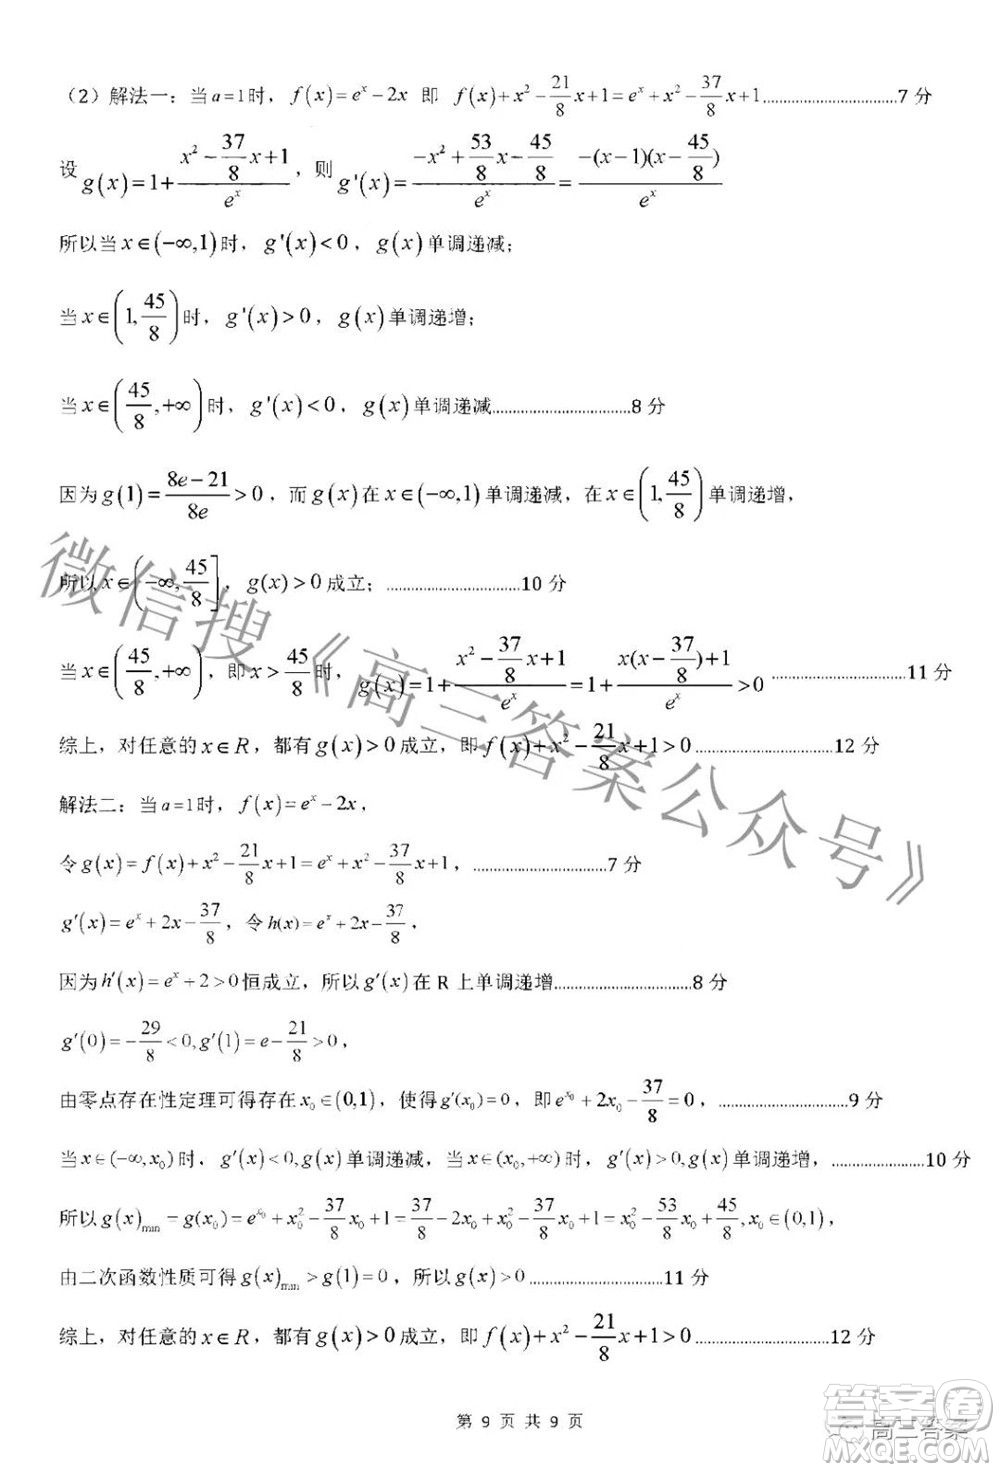 （2）解法一：当 a=1 时，f(x)=e^x−2x 即 f(x)+x²−21/8x+1=e^x+x²−37/8x+1..................................7 分
设 g(x)=1+(x²−37/8x+1)/e^x，则 g'(x)=(−x²+53/8x−45/8)/e^x=−(x−1)(x−45/8)/e^x
所以当 x∈(−∞,1) 时，g'(x)<0，g(x) 单调递减；
当 x∈(1,45/8) 时，g'(x)>0，g(x) 单调递增；
当 x∈(45/8,+∞) 时，g'(x)<0，g(x) 单调递减..................................8 分
因为 g(1)=(8e−21)/8e>0，而 g(x) 在 x∈(−∞,1) 单调递减，在 x∈(1,45/8) 单调递增，
所以 x∈(−∞,45/8]，g(x)>0 成立；..................................10 分
当 x∈(45/8,+∞)，即 x>45/8 时，g(x)=1+(x²−37/8x+1)/e^x=1+(x(x−37/8)+1)/e^x>0 ..................................11 分
综上，对任意的 x∈R，都有 g(x)>0 成立，即 f(x)+x²−21/8x+1>0..................................12 分
解法二：当 a=1 时，f(x)=e^x−2x，
令 g(x)=f(x)+x²−21/8x+1=e^x+x²−37/8x+1，..................................7 分
g'(x)=e^x+2x−37/8，令 h(x)=e^x+2x−37/8，
因为 h'(x)=e^x+2>0 恒成立，所以 g'(x) 在 R 上单调递增..................................8 分
g'(0)=−29/8<0,g'(1)=e−21/8>0，
由零点存在性定理可得存在 x₀∈(0,1)，使得 g'(x₀)=0，即 e^x₀+2x₀−37/8=0，..................................9 分
当 x∈(−∞,x₀) 时，g'(x)<0,g(x) 单调递减，当 x∈(x₀,+∞) 时，g'(x)>0,g(x) 单调递增，........................10 分
所以 g(x)min=g(x₀)=e^x₀+x₀²−37/8x₀+1=37/8−2x₀+x₀²−37/8x₀+1=x₀²−53/8x₀+45/8,x₀∈(0,1)，
由二次函数性质可得 g(x)min>g(1)=0，所以 g(x)>0..................................11 分
综上，对任意的 x∈R，都有 g(x)>0 成立，即 f(x)+x²−21/8x+1>0..................................12 分
微信搜《高三答案公众号》
第 9 页 共 9 页
答案卷
高三答案
MXQE.COM